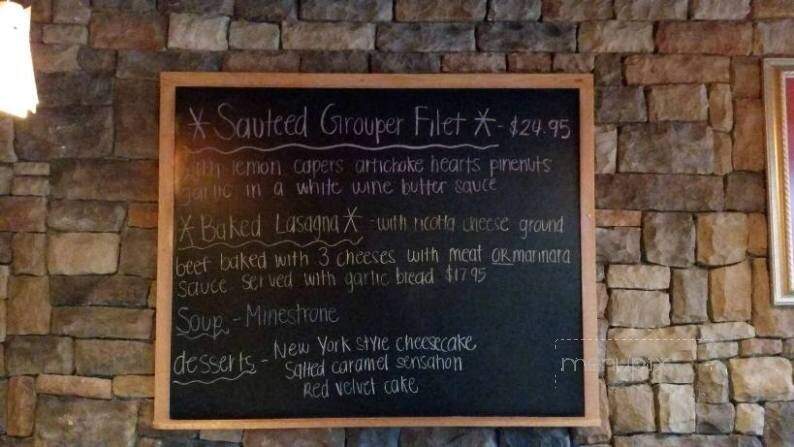 * Sauteed Grouper Filet * - $24.95
with lemon capers artichoke hearts pinenuts
garlic in a white wine butter sauce
* Baked Lasagna * - with ricotta cheese ground
beef baked with 3 cheeses with meat OR marinara
sauce served with garlic bread $17.95
Soup - Minestrone
desserts - New York style cheesecake
Salted caramel sensation
Red velvet cake
menupix